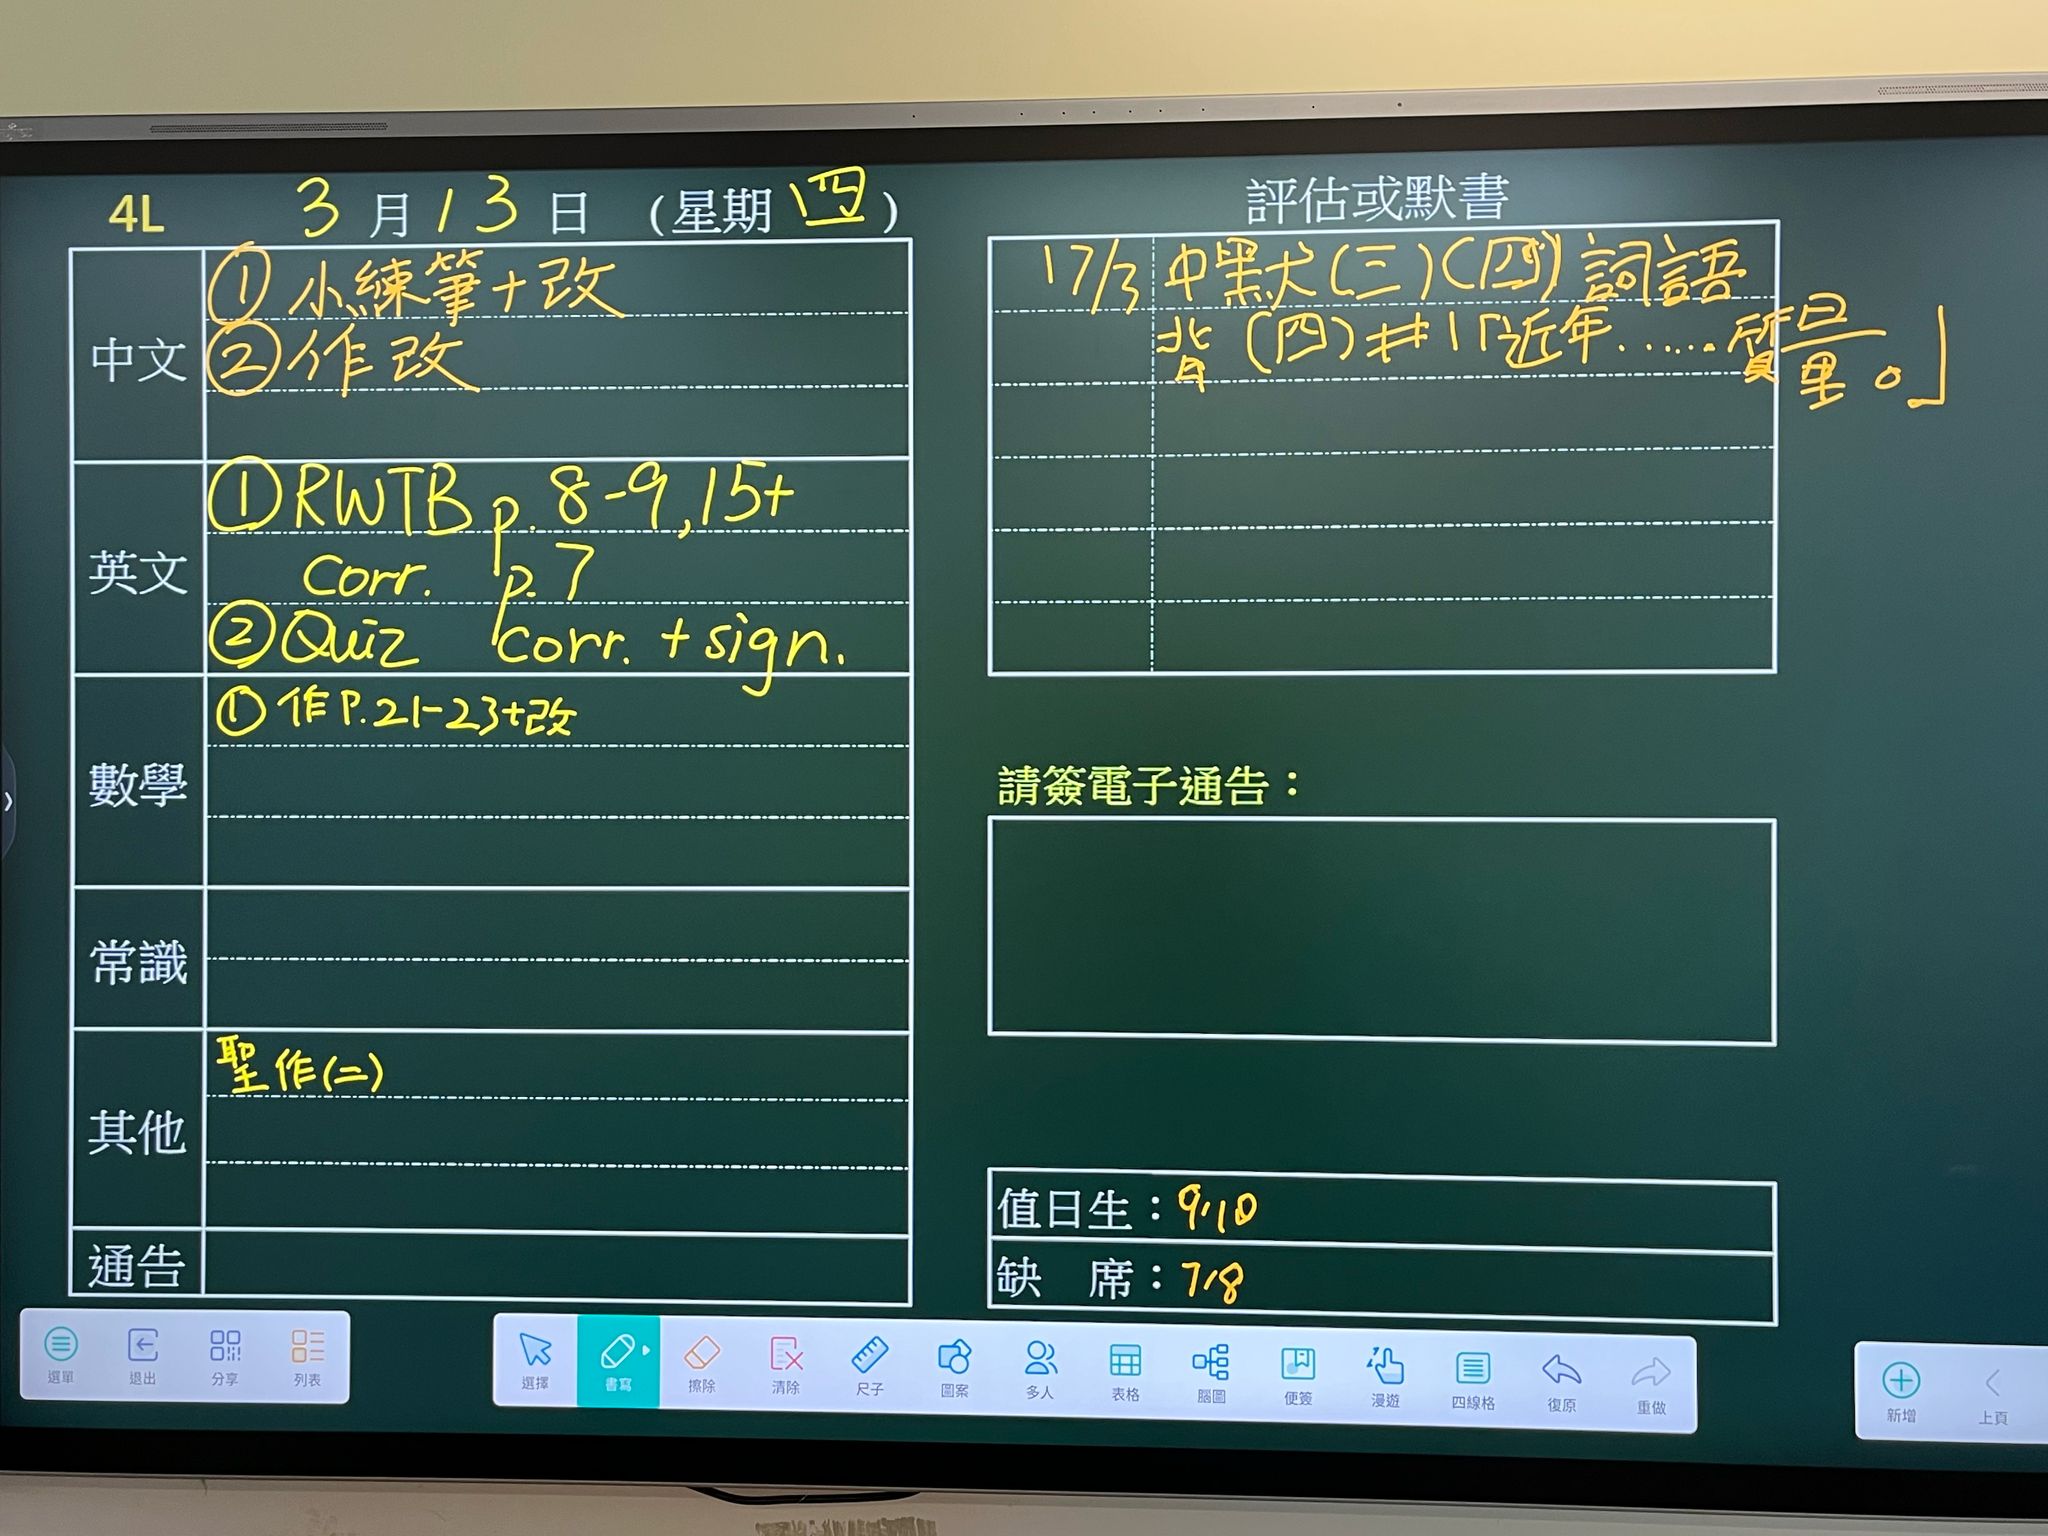 4L 3月13日 (星期四)
中文
①小練筆+改
②作改
英文
①RWTB p.8-9,15+
corr. p.7
②Quiz corr. + sign.
數學
①作P.21-23+改
常識
其他
聖作(二)
通告
評估或默書
17/3 中默(三)(四)詞語
背(四)#1「近年......質量。」
請簽電子通告：
值日生：9,10
缺 席：7,8
選單 退出 分享 列表
選擇 書寫 擦除 清除 尺子 圖案 多人 表格 腦圖 便簽 漫遊 四線格 復原 重做
新增 上頁